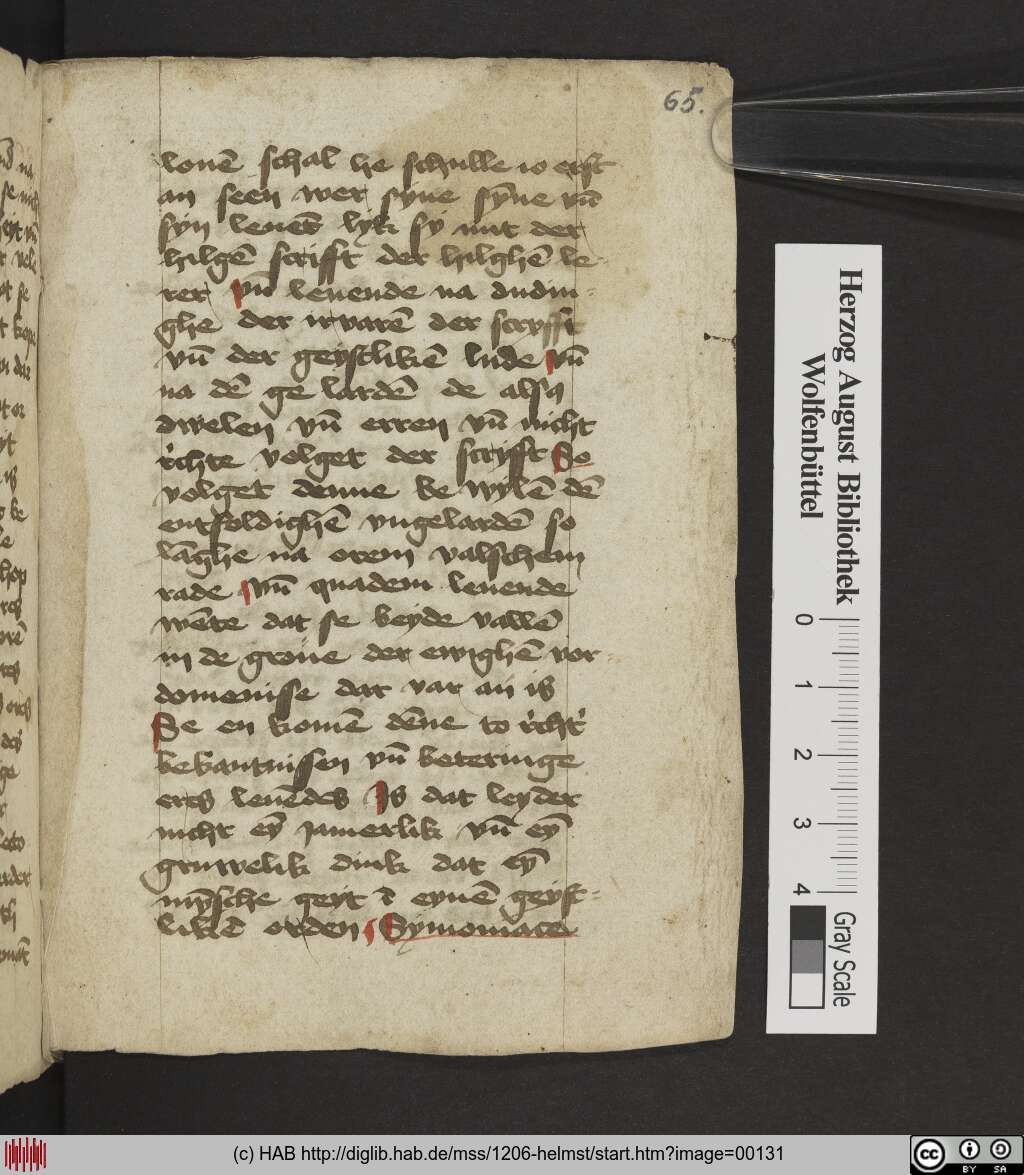 65.
louē schal he schulle io erst
an seen wer syne sȳne vn̄
syn leuēt lyk sy mit der
hilgē scrifft der hilghē le
rer vn̄ leuende na dudin
ghe der irvarē der scryfft
vn̄ der geystlikē lude vn̄
na dē ge lardē de alsus
dwelen vn̄ erren vn̄ nicht
rchte volget der scryfft So
volget denne be wylē dē
entfoldighē vngelardē so
lāghe na orem valschem
rade vn̄ quadem leuende
wēte dat se beyde vallē
in de groue der ewighē vor
domenisse dar var an is
Se en komē dēne to rcht
bekantnissen vn̄ beteringe
eres leuēdes Is dat leyder
nicht eȳ Jamerlik vn̄ eȳ
gruwelik dink dat eȳ
mȳsche geyt ī eynē geyst
likē orden Symoniace
Herzog August Bibliothek
Wolfenbüttel
0 1 2 3 4
Gray Scale
(c) HAB http://diglib.hab.de/mss/1206-helmst/start.htm?image=00131
cc BY SA